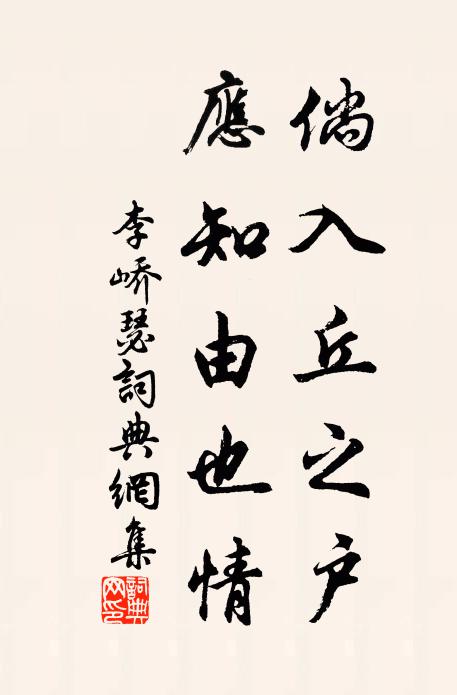 倘入丘之户
應知由也情
李嶠瑟詞典網集
詞典網印